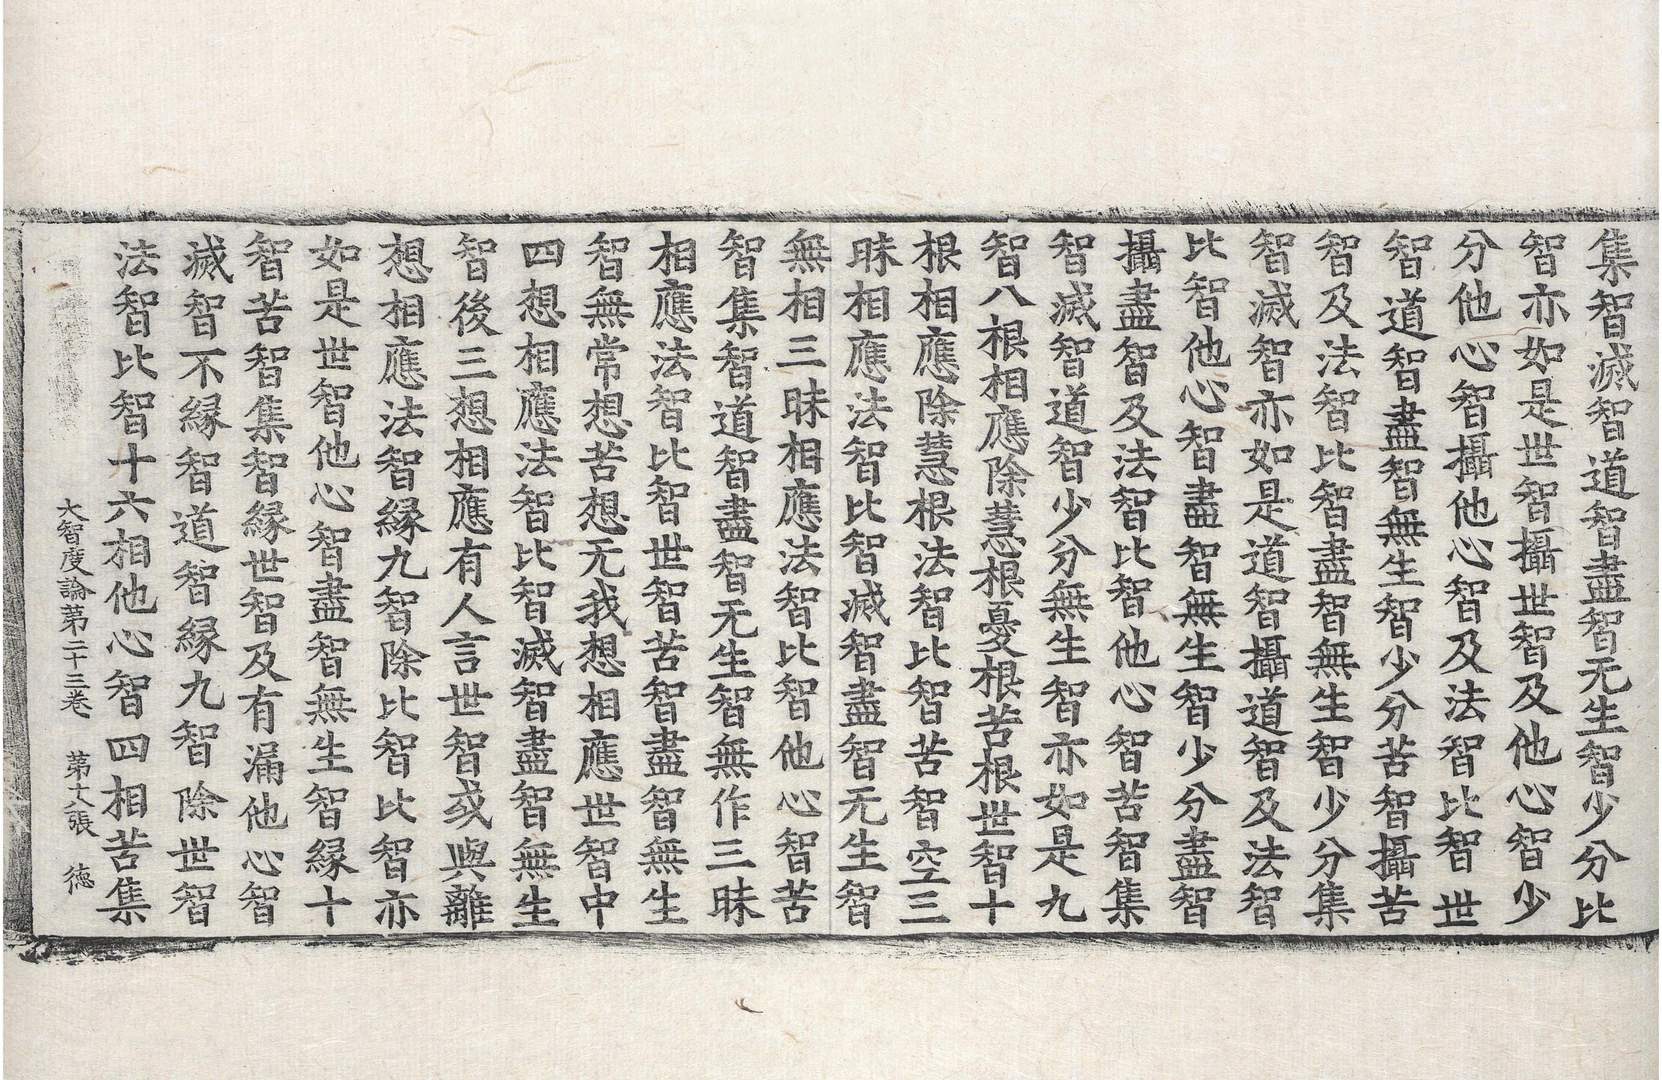 集智滅智道智盡智无生智少分比
智亦如是世智攝世智及他心智少
分他心智攝他心智及法智比智世
智道智盡智無生智少分苦智攝苦
智及法智比智盡智無生智少分集
智滅智亦如是道智攝道智及法智
比智他心智盡智無生智少分盡智
攝盡智及法智比智他心智苦智集
智滅智道智少分無生智亦如是九
智八根相應除慧根憂根苦根世智十
根相應除慧根法智比智苦智空三
昧相應法智比智滅智盡智无生智
無相三昧相應法智比智他心智苦
智集智道智盡智无生智無作三昧
相應法智比智世智苦智盡智無生
智無常想苦想无我想相應世智中
四想相應法智比智滅智盡智無生
智後三想相應有人言世智或與離
想相應法智緣九智除比智比智亦
如是世智他心智盡智無生智緣十
智苦智集智緣世智及有漏他心智
滅智不緣智道智緣九智除世智
法智比智十六相他心智四相苦集
大智度論第二十三卷 第十張 德